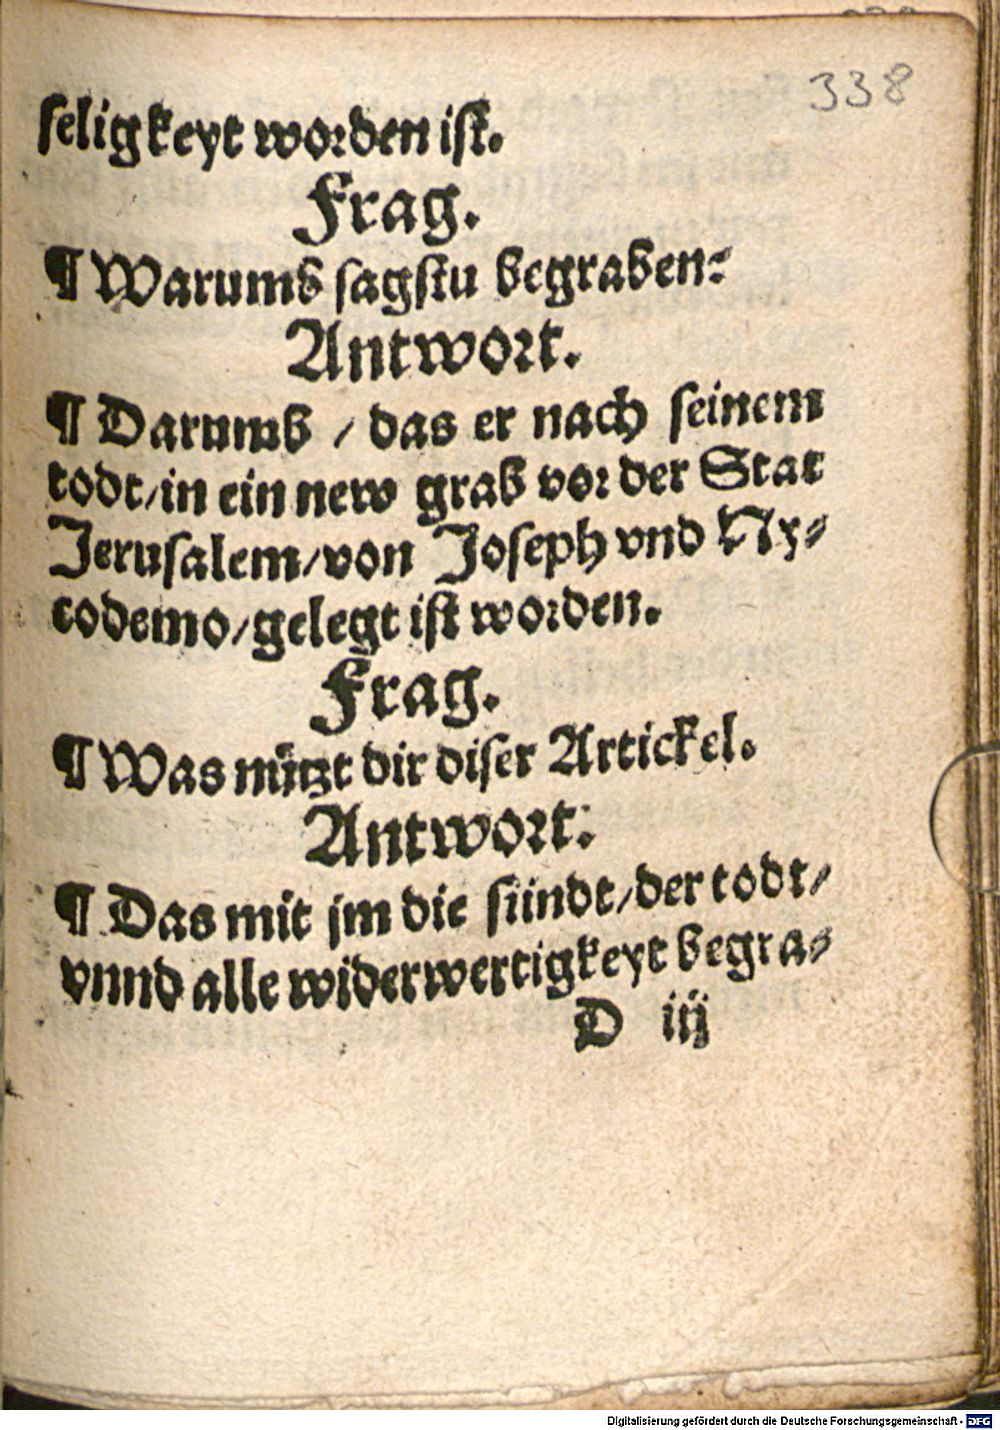 338
seligkeyt worden ist.
Frag.
¶ Warumb sagstu begraben:
Antwort.
¶ Darumb / das er nach seinem
todt / in ein new grab vor der Stat
Jerusalem / von Joseph vnd Ny-
codemo / gelegt ist worden.
Frag.
¶ Was nützt dir diser Artickel.
Antwort:
¶ Das mit jm die sündt / der todt /
vnnd alle widerwertigkeyt begra-
D iij
Digitalisierung gefördert durch die Deutsche Forschungsgemeinschaft - DFG